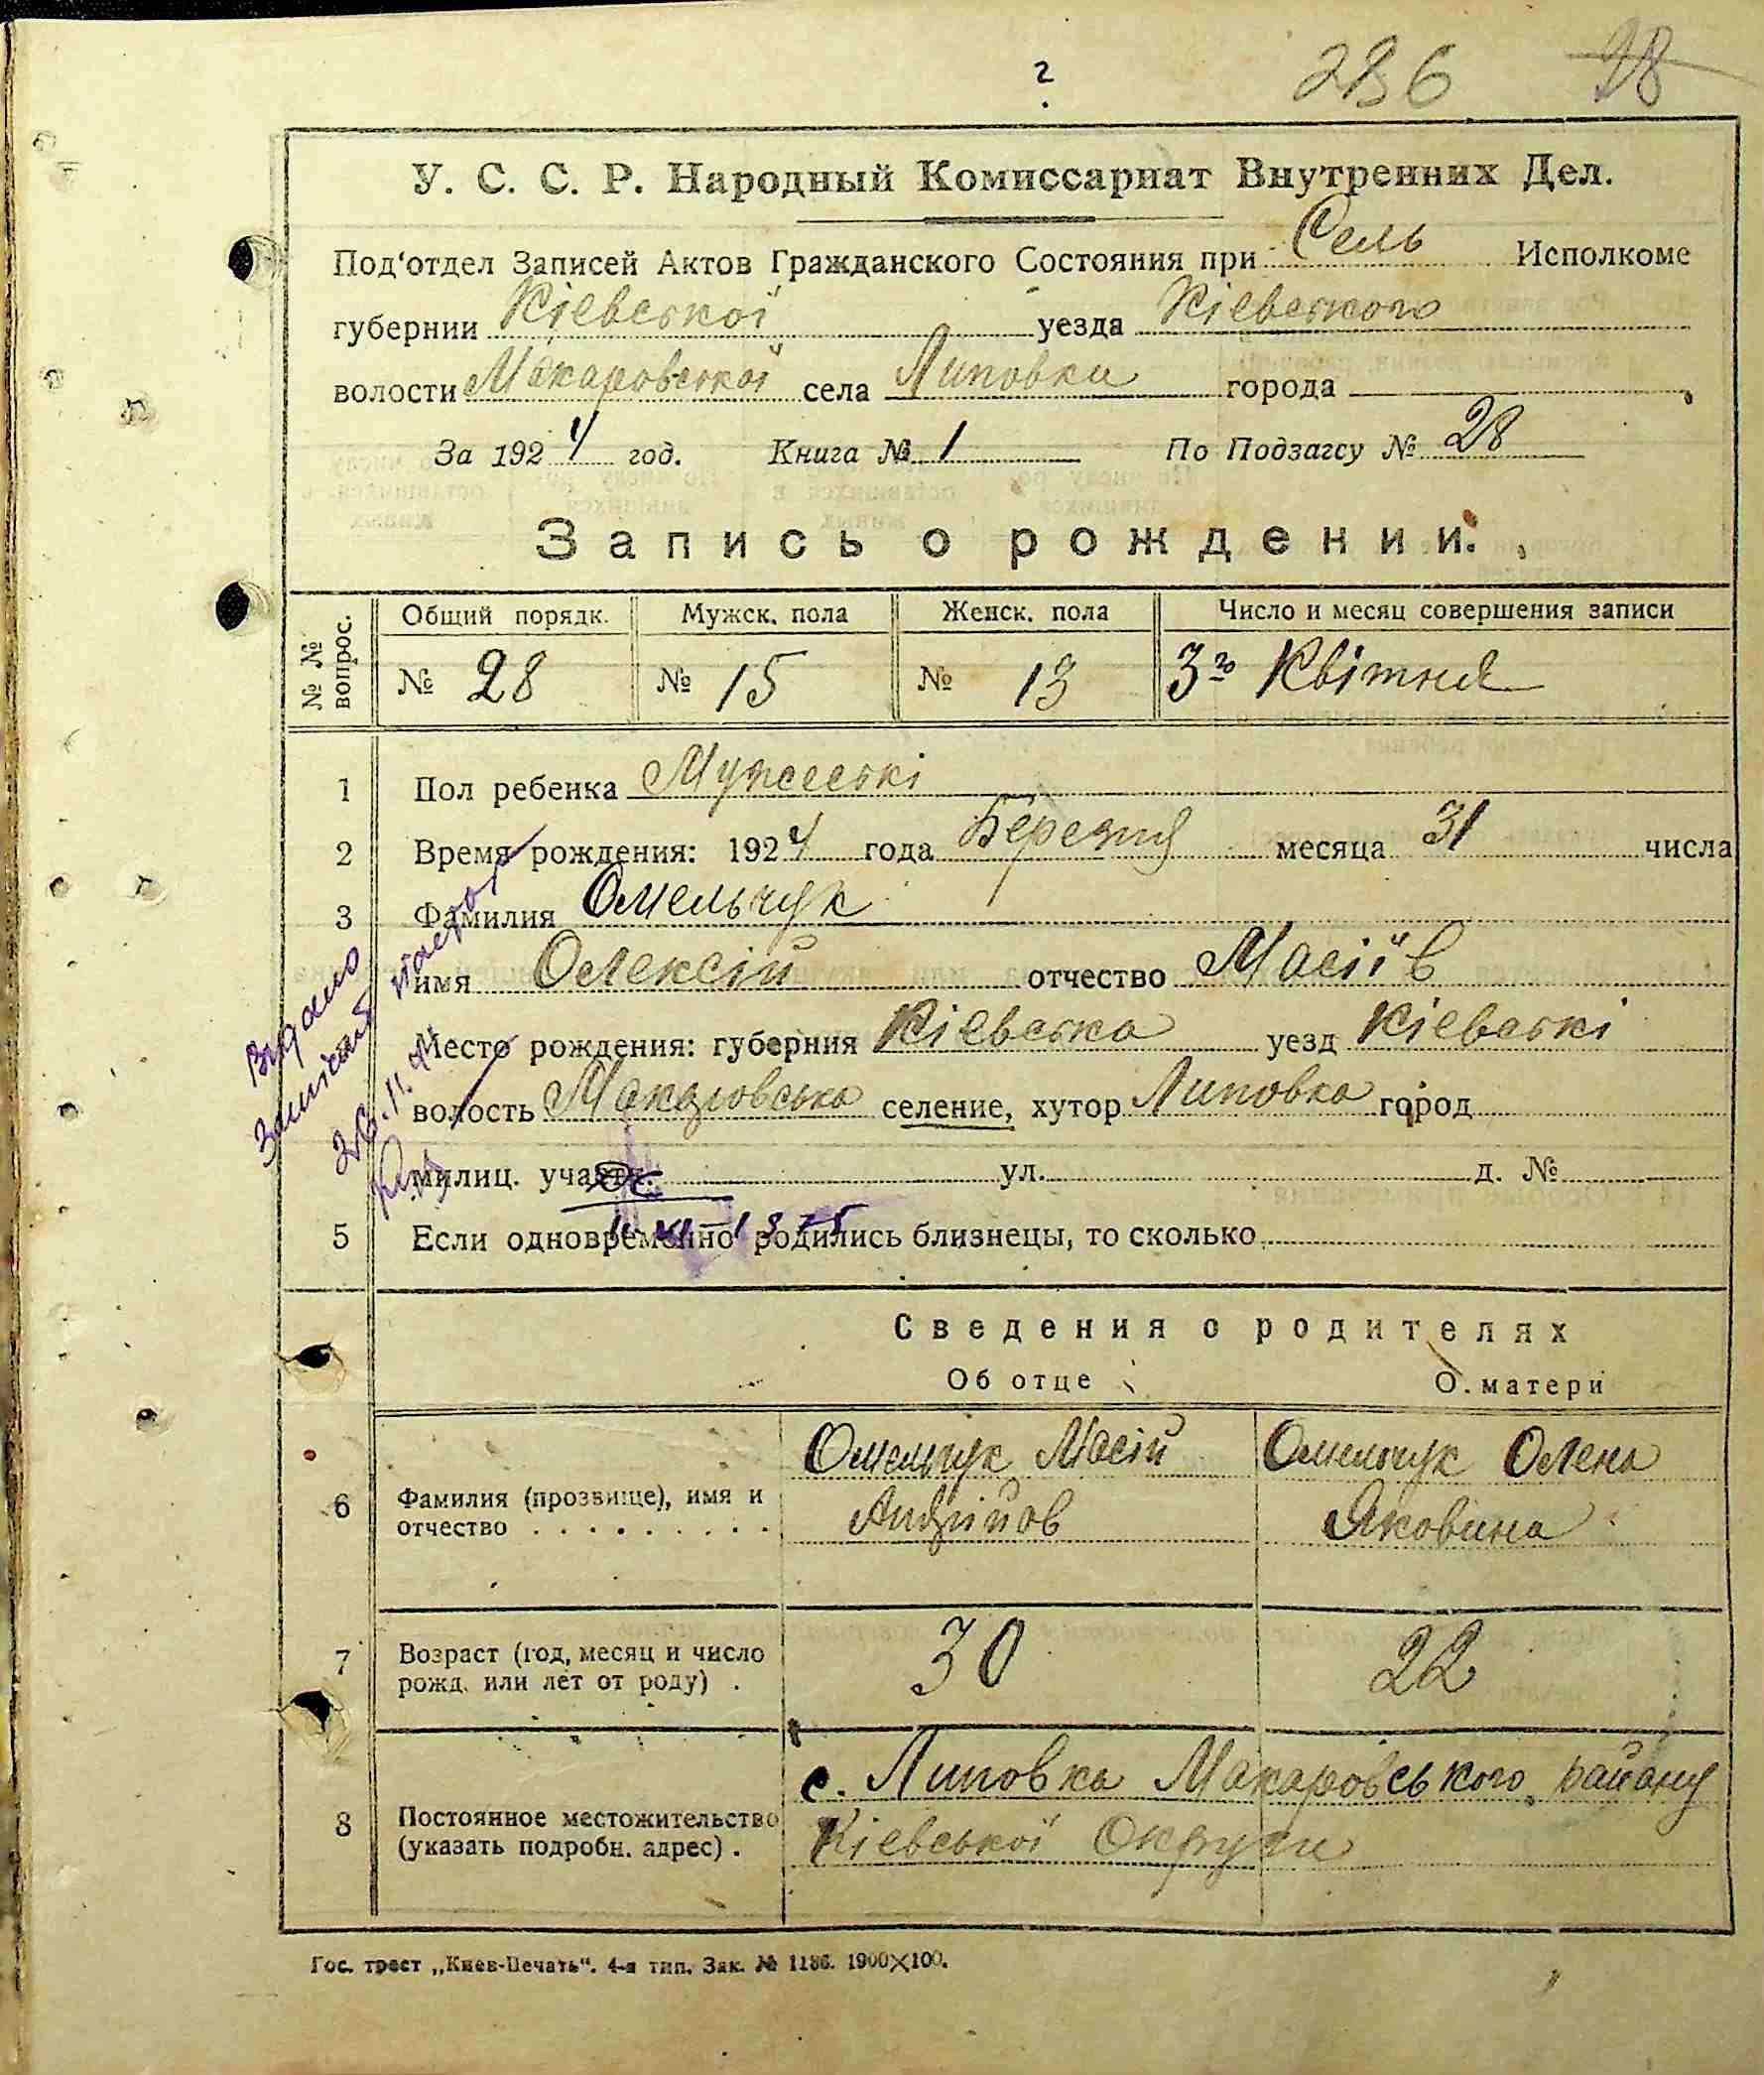 2
236 28
У. С. С. Р. Народный Комиссариат Внутренних Дел.
Под‘отдел Записей Актов Гражданского Состояния при Сель Исполкоме
губернии Кіевської уезда Кіевського
волости Макаровської села Липовки города
За 1924 год. Книга № 1 По Подзагсу № 28
Запись о рождении.
№ № вопрос.
Общий порядк. Мужск. пола Женск. пола Число и месяц совершения записи
№ 28 № 15 № 13 3го Квітня
1 Пол ребенка Мужеські
2 Время рождения: 1924 года Березня месяца 31 числа
3 Фамилия Омельчук
имя Олексій отчество Масіїв
Место рождения: губерния Кіевська уезд Кіевські
волость Макаровська селение, хутор Липовка город
милиц. участк. ул. д. №
5 Если одновременно родились близнецы, то сколько
Видано
26.11.
Сведения о родителях
Об отце О матери
Омельчук Масій Омельчук Олена
6 Фамилия (прозвище), имя и Андрійов Яковина
отчество . . . . . . . . .
7 Возраст (год, месяц и число 30 22
рожд. или лет от роду) .
с. Липовка Макаровського району
8 Постоянное местожительство Кіевської Округи
(указать подробн. адрес) .
Гос. трест „Киев-Печать“. 4-я тип. Зак. № 1186. 1900×100.